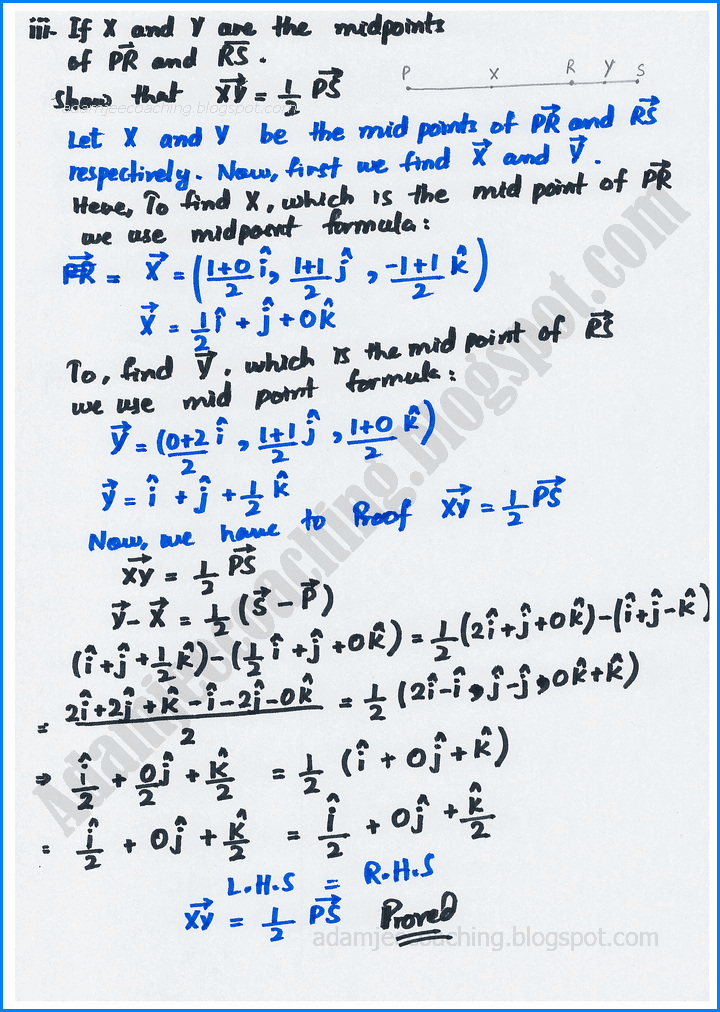 iii- If X and Y are the midpoints
of PR⃗ and RS⃗.
Show that XY⃗ = 1/2 PS⃗
adamjeecoaching.blogspot.com
P X R Y S
Let X and Y be the mid points of PR⃗ and RS⃗
respectively. Now, first we find X⃗ and Y⃗.
Here, To find X, which is the mid point of PR⃗
we use midpoint formula:
PR⃗ = X⃗ = (1+0/2 î, 1+1/2 ĵ, -1+1/2 k̂)
X⃗ = 1/2 î + ĵ + 0k̂
To, find Y⃗, which is the mid point of RS⃗
we use mid point formula:
Y⃗ = (0+2/2 î, 1+1/2 ĵ, 1+0/2 k̂)
y⃗ = î + ĵ + 1/2 k̂
Now, we have to Proof XY⃗ = 1/2 PS⃗
XY⃗ = 1/2 PS⃗
y⃗ - X⃗ = 1/2 (S⃗ - P⃗)
(î+ĵ+1/2 k̂)-(1/2 î+ĵ+0k̂) = 1/2 (2î+ĵ+0k̂)-(î+ĵ-k̂)
= 2î+2ĵ+k̂-î-2ĵ-0k̂/2 = 1/2 (2î-î, ĵ-ĵ, 0k̂+k̂)
⇒ î/2 + 0ĵ/2 + k̂/2 = 1/2 (î + 0ĵ + k̂)
= î/2 + 0ĵ + k̂/2 = î/2 + 0ĵ + k̂/2
L.H.S = R.H.S
XY⃗ = 1/2 PS⃗ Proved
adamjeecoaching.blogspot.com
Adamjeecoaching.blogspot.com